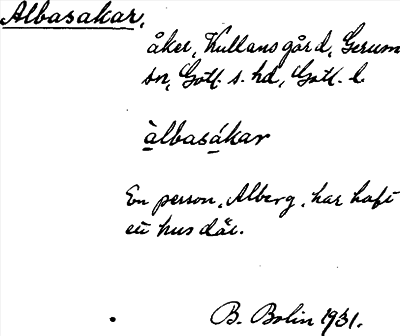 Albasakar,
åker, Kullansgård, Gerum
sn, Gotl. s. hd, Gotl. l.
àlbasákar
En person, Alberg, har haft
ett hus där.
B. Bolin 1931.